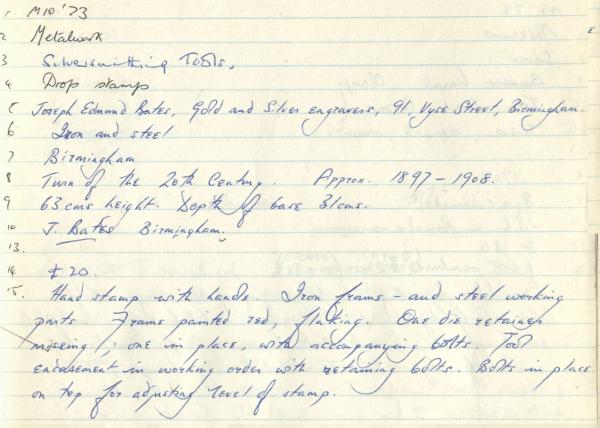 1 M10 '73
2 Metalwork
3 Silversmithing Tools.
4 Drop stamp
5 Joseph Edmund Bates, Gold and Silver engravers, 91, Vyse Street, Birmingham.
6 Iron and steel
7 Birmingham
8 Turn of the 20th Century. Approx. 1897 - 1908.
9 63 cms height. Depth of base 31cms.
10 J. Bates Birmingham.
13.
14 £20.
15. Hand stamp with handle. Iron frame - and steel working
parts. Frame painted red, flaking. One die retainer
missing, ; one in place, with accompanying bolts. Tool
encasement in working order with retaining bolts. Bolts in place
on top for adjusting level of stamp.